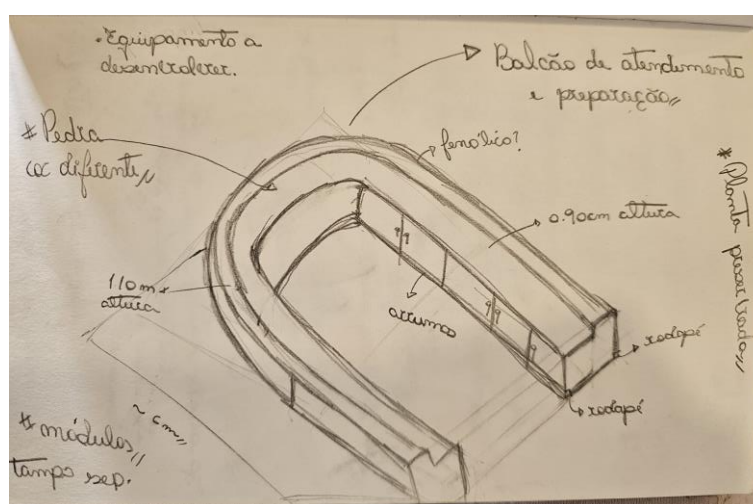 • Equipamento a
desenvolver.
Balcão de atendimento
e preparação,,
* Pedra
cor diferente,,
fenólico?
* Planta preservado,,
0.90cm altura
110m x
altura
arrumos
rodapé
rodapé
* módulos,,
tampo sep.